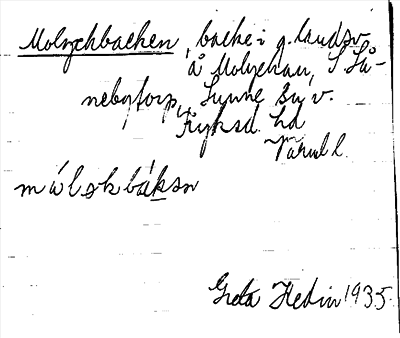 Molychbacken, backe i g. landsv.
å Molychan, S Så-
nebytorp, Sunne sn v.
Fryksd. hd
Värml.
m á l ə k b á k s n
Greta Hedin 1935